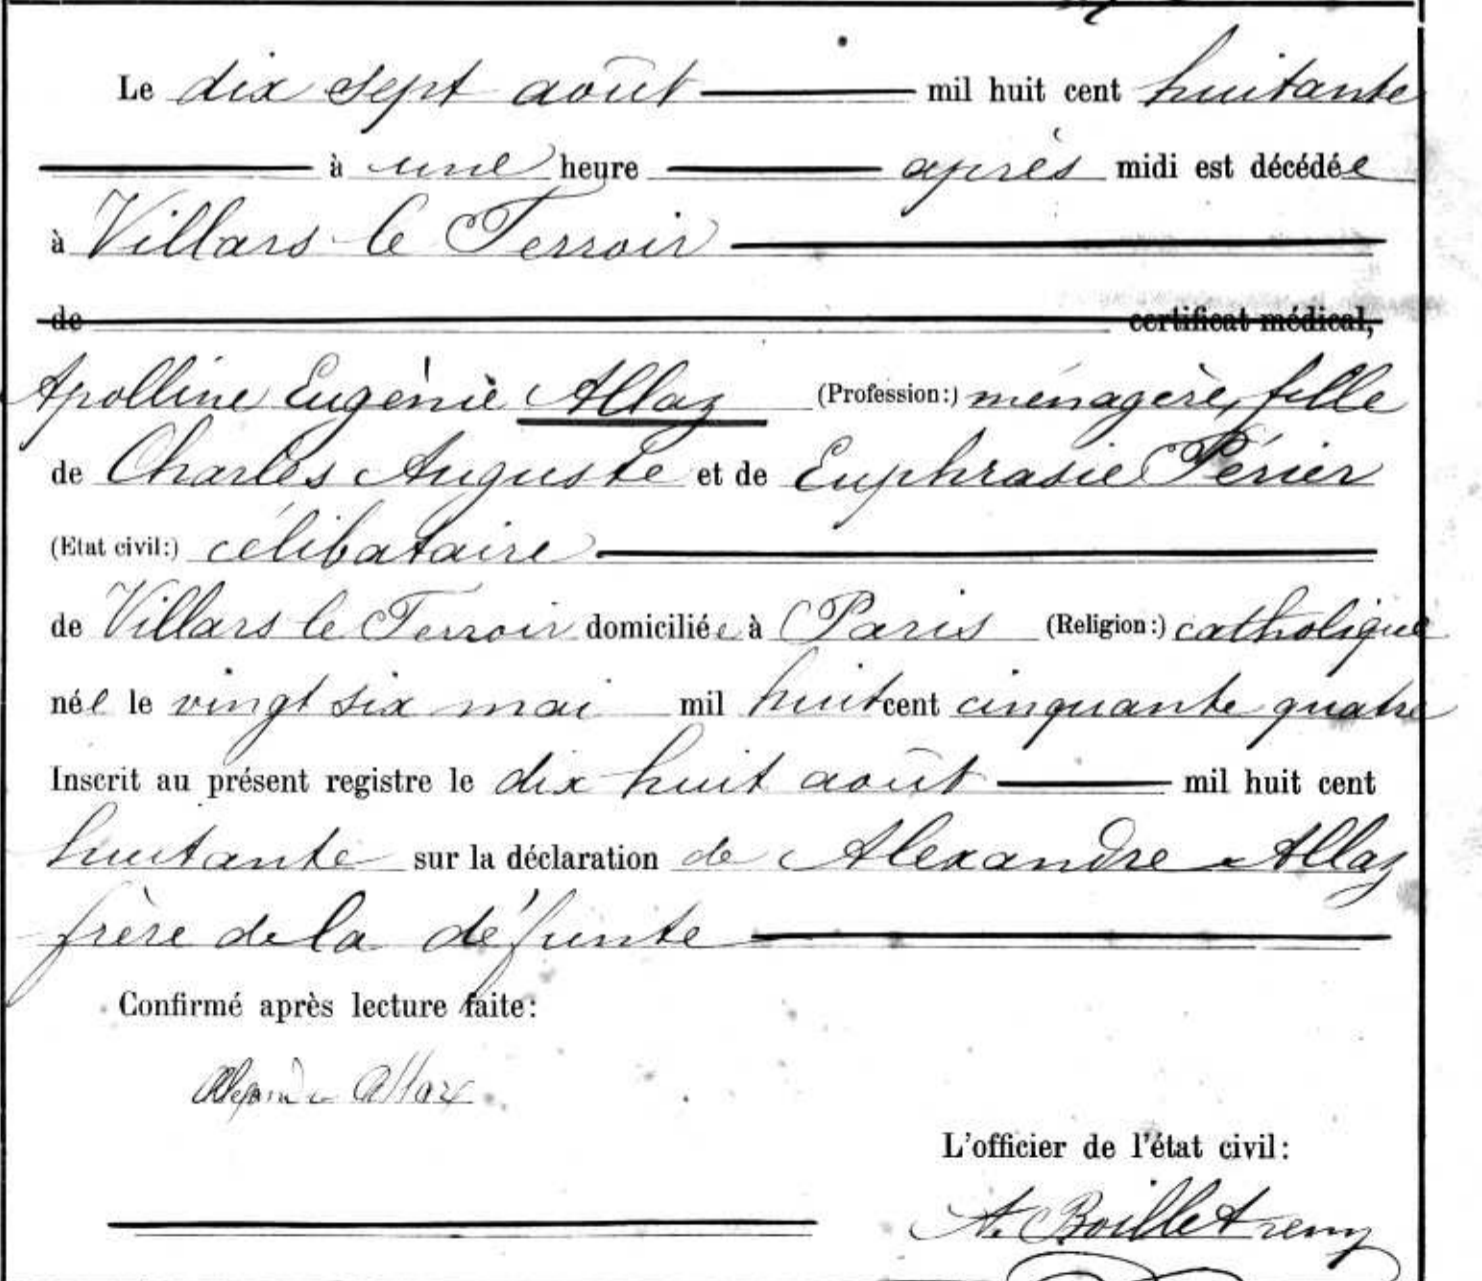 Le dix sept août mil huit cent huitante
à une heure après midi est décédée
à Villars le Terroir
de certificat médical,
Apolline Eugénie Allaz (Profession:) ménagère, fille
de Charles Auguste et de Euphrasie Périer
(Etat civil:) célibataire
de Villars le Terroir domiciliée à Paris (Religion:) catholique
née le vingt six mai mil huit cent cinquante quatre
Inscrit au présent registre le dix huit août mil huit cent
huitante sur la déclaration de Alexandre Allaz
frère de la défunte
Confirmé après lecture faite:
Allaz
L'officier de l'état civil: